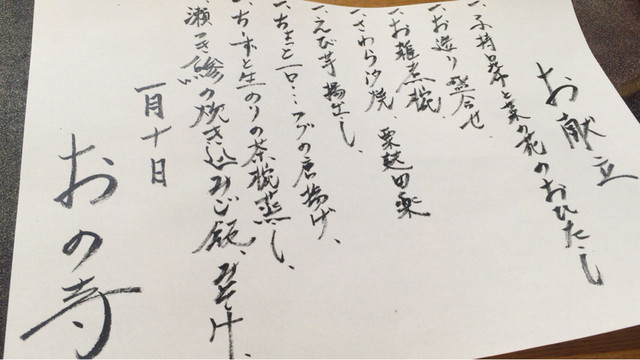 お献立
一、子持昆布と菜の花のおひたし
一、お造り盛合せ
一、お雑煮椀
一、さわら汐焼、粟麩田楽
一、えび芋揚出し、
一、ちょっと一口…フグの唐揚げ、
一、ちーずと生のりの茶椀蒸し、
瀬つき鯵の炊き込みご飯、みそ汁、
一月十日
おの寺